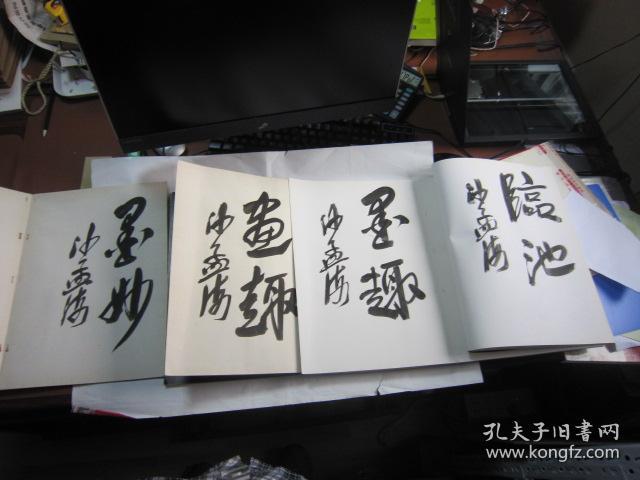 墨妙
沙孟海
画趣
沙孟海
墨趣
沙孟海
臨池
沙孟海
孔夫子旧书网
www.kongfz.com